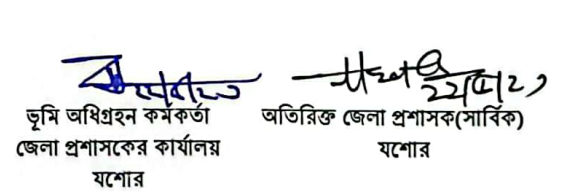 ভূমি অধিগ্রহন কর্মকর্তা
জেলা প্রশাসকের কার্যালয়
যশোর
অতিরিক্ত জেলা প্রশাসক(সার্বিক)
যশোর